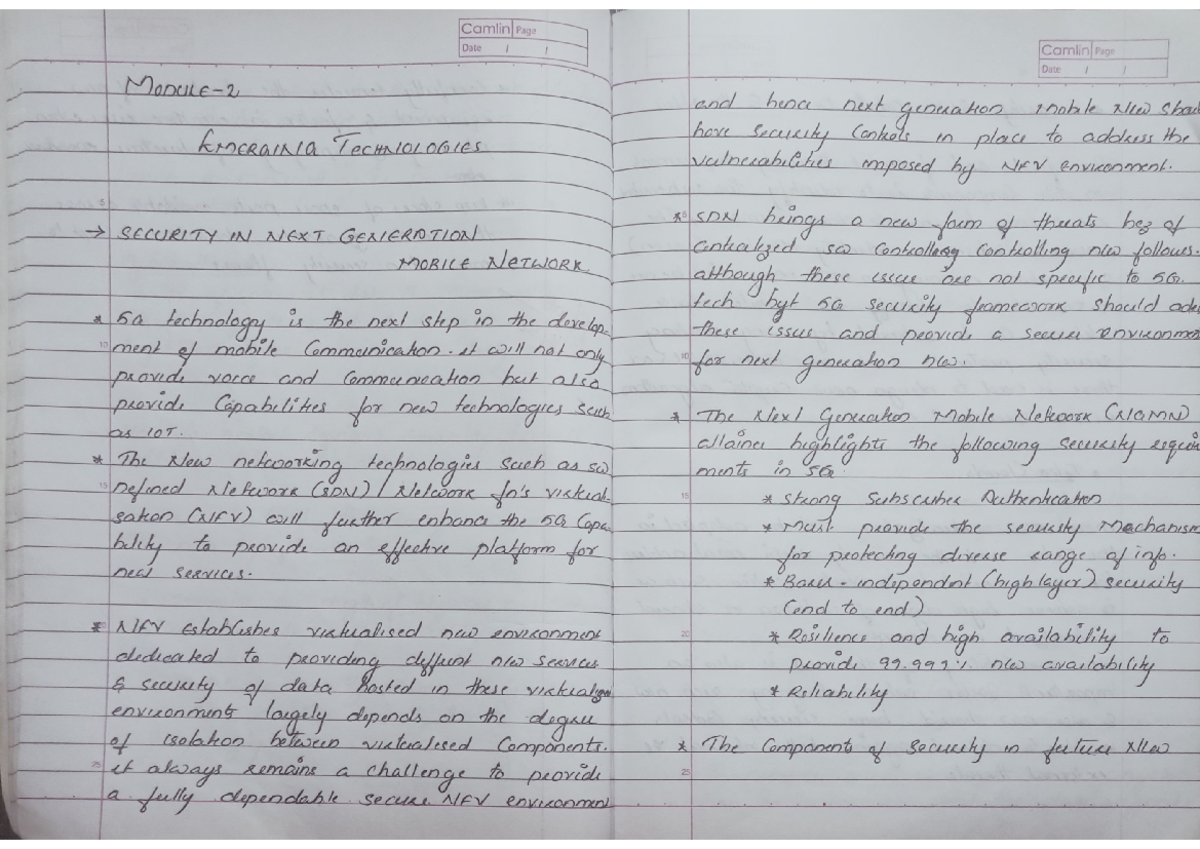 Camlin Page
Date / /
MODULE-2
EMERGING TECHNOLOGIES
→ SECURITY IN NEXT GENERATION
MOBILE NETWORK.
* 5G technology is the next step in the develop-
ment of mobile Communication. it will not only
provide voice and Communication but also
provide Capabilities for new technologies such
as IOT.
* The New networking technologies such as sw
Defined Network (SDN) / Network fn's virtuali-
sation (NFV) will further enhance the 5G Capa-
bility to provide an effective platform for
new services.
* NFV Establishes virtualised nw environment
dedicated to providing different nw services
& security of data hosted in these virtualized
environment largely depends on the degree
of isolation between virtualised Components.
it always remains a challenge to provide
a fully dependable secure NFV environment
Camlin Page
Date / /
and hence next generation mobile N/w shoul
have security Controls in place to address the
vulnerabilities imposed by NFV environment.
* SDN brings a new form of threats bcz of
Centralized sw Controlling Controlling nw follows.
although these issue are not specific to 5G.
tech byt 5G security framework should add
these issus and provide a secure environmen
for next generation nw.
* The Next Generation Mobile Network (NGMN)
allaince highlights the following security requir
ments in 5G.
* Strong Subscriber Authentication
* Must provide the security Mechanism
for protecting diverse range of info.
* Barer-independent (high layer) security
(end to end)
* Resilience and high availability to
provide 99.999% nw availability
* Reliability
* The Components of Security in future N/w
5
10
15
20
25
10
15
20
25